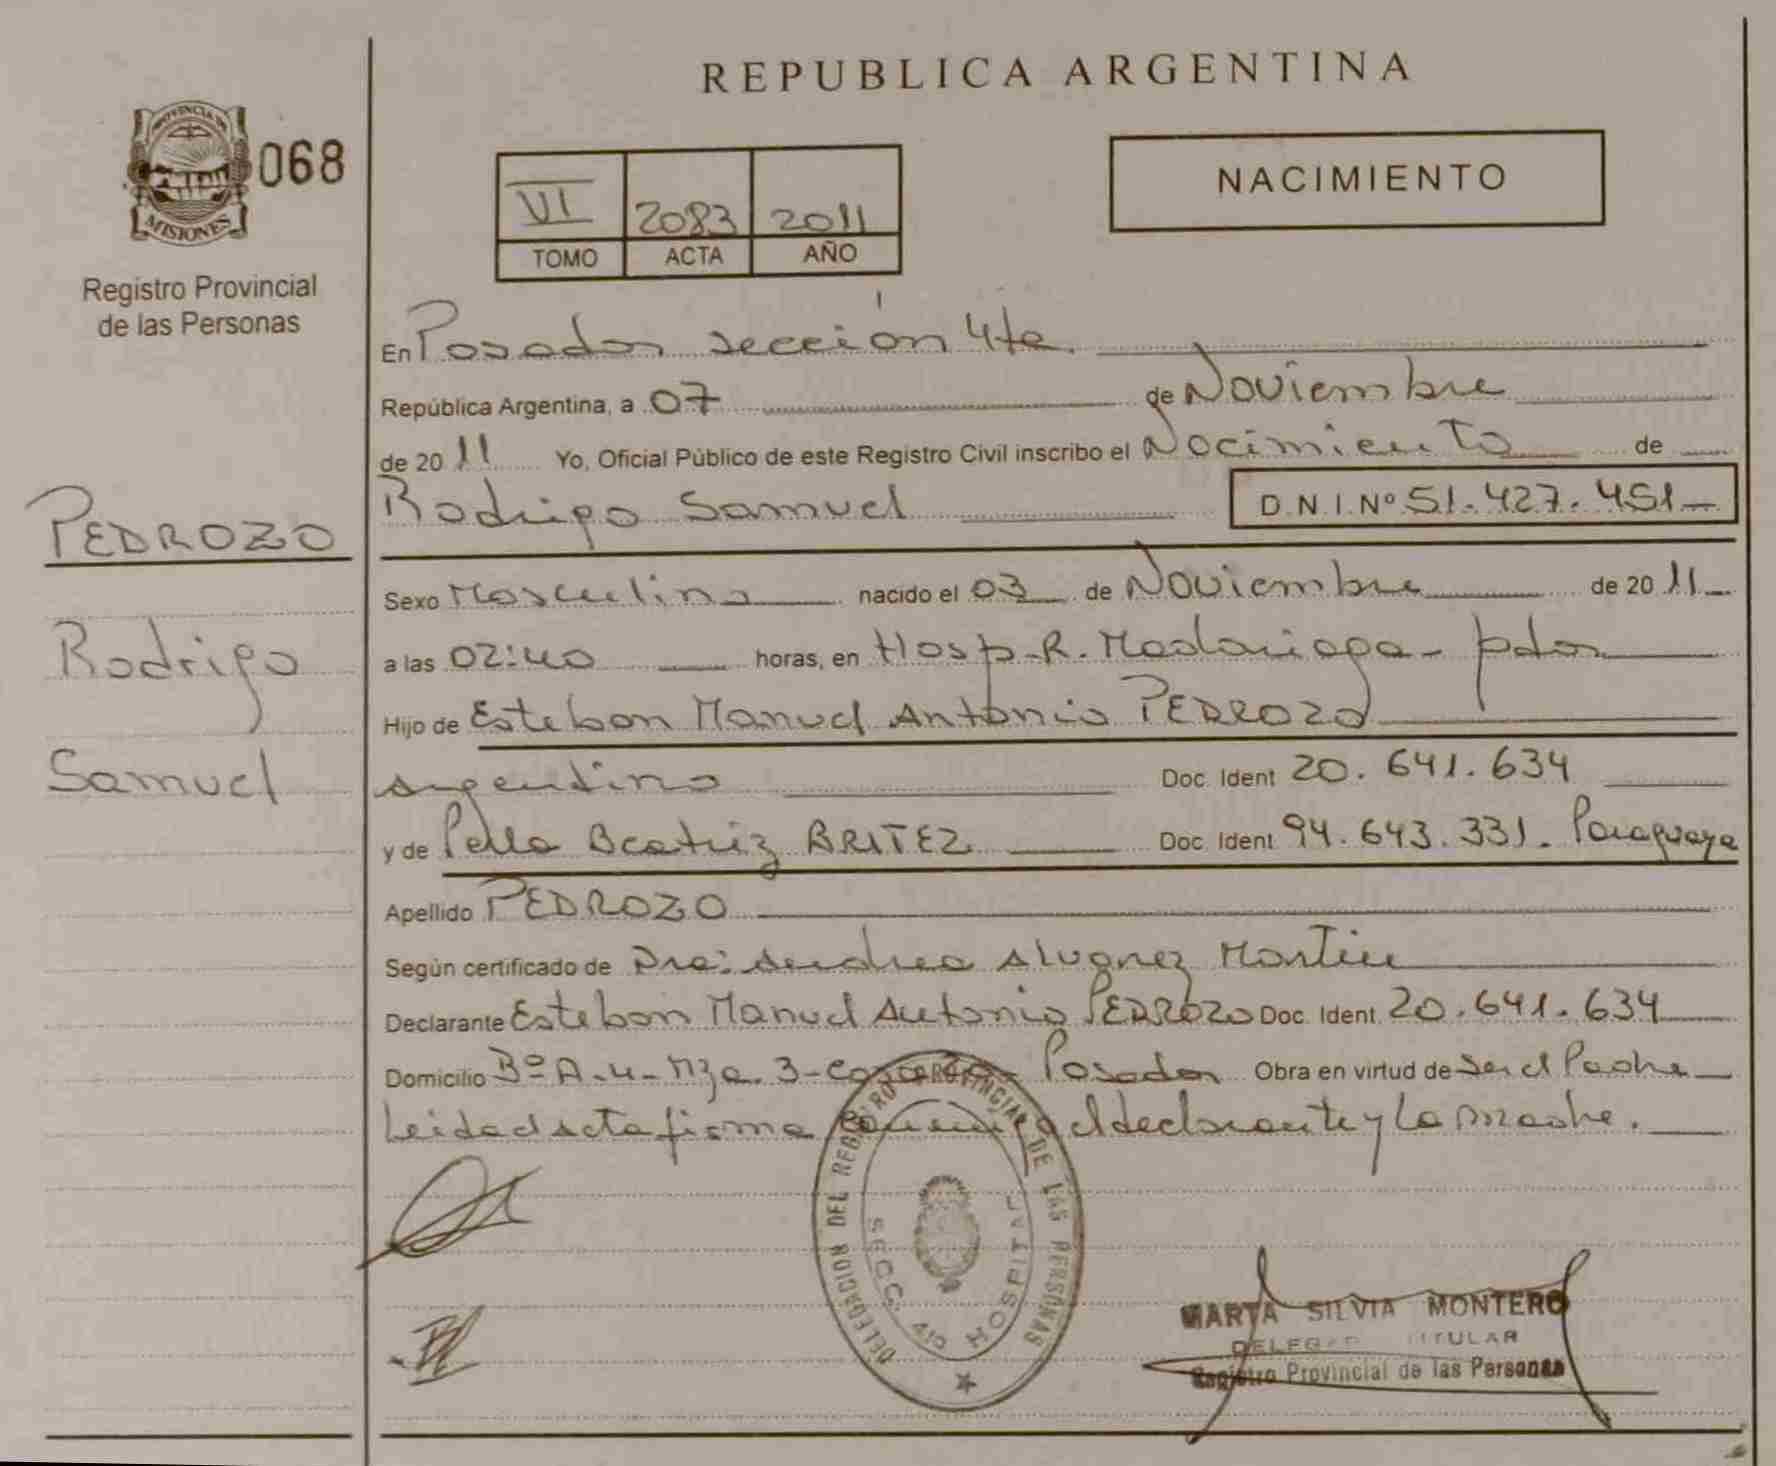 REPUBLICA ARGENTINA
PROVINCIA DE
MISIONES
068
Registro Provincial
de las Personas
VI 2083 2011
TOMO ACTA AÑO
NACIMIENTO
En Posadas sección 4ta.
República Argentina, a 07 de Noviembre
de 2011 Yo, Oficial Público de este Registro Civil inscribo el Nacimiento de
Rodrigo Samuel D.N.I.Nº 51.427.451
PEDROZO
Rodrigo
Samuel
Sexo Masculino nacido el 03 de Noviembre de 2011
a las 02:40 horas, en Hosp. R. Madariaga - pdas
Hijo de Esteban Manuel Antonio PEDROZO
Argentino Doc. Ident 20.641.634
y de Beatriz BRITEZ Doc. Ident 94.643.331. Paraguaya
Apellido PEDROZO
Según certificado de Dra: Andrea Alvarez Martin
Declarante Esteban Manuel Antonio PEDROZO Doc. Ident. 20.641.634
Domicilio Bº A-4- Mza. 3- casa Posadas Obra en virtud de ser el Padre
Leida el acta firma conmigo el declarante y La Madre.
DELEGACION DEL REGISTRO PROVINCIAL DE LAS PERSONAS
SECC. 4ta HOSPITAL
MARTA SILVIA MONTERO
TITULAR
Registro Provincial de las Personas